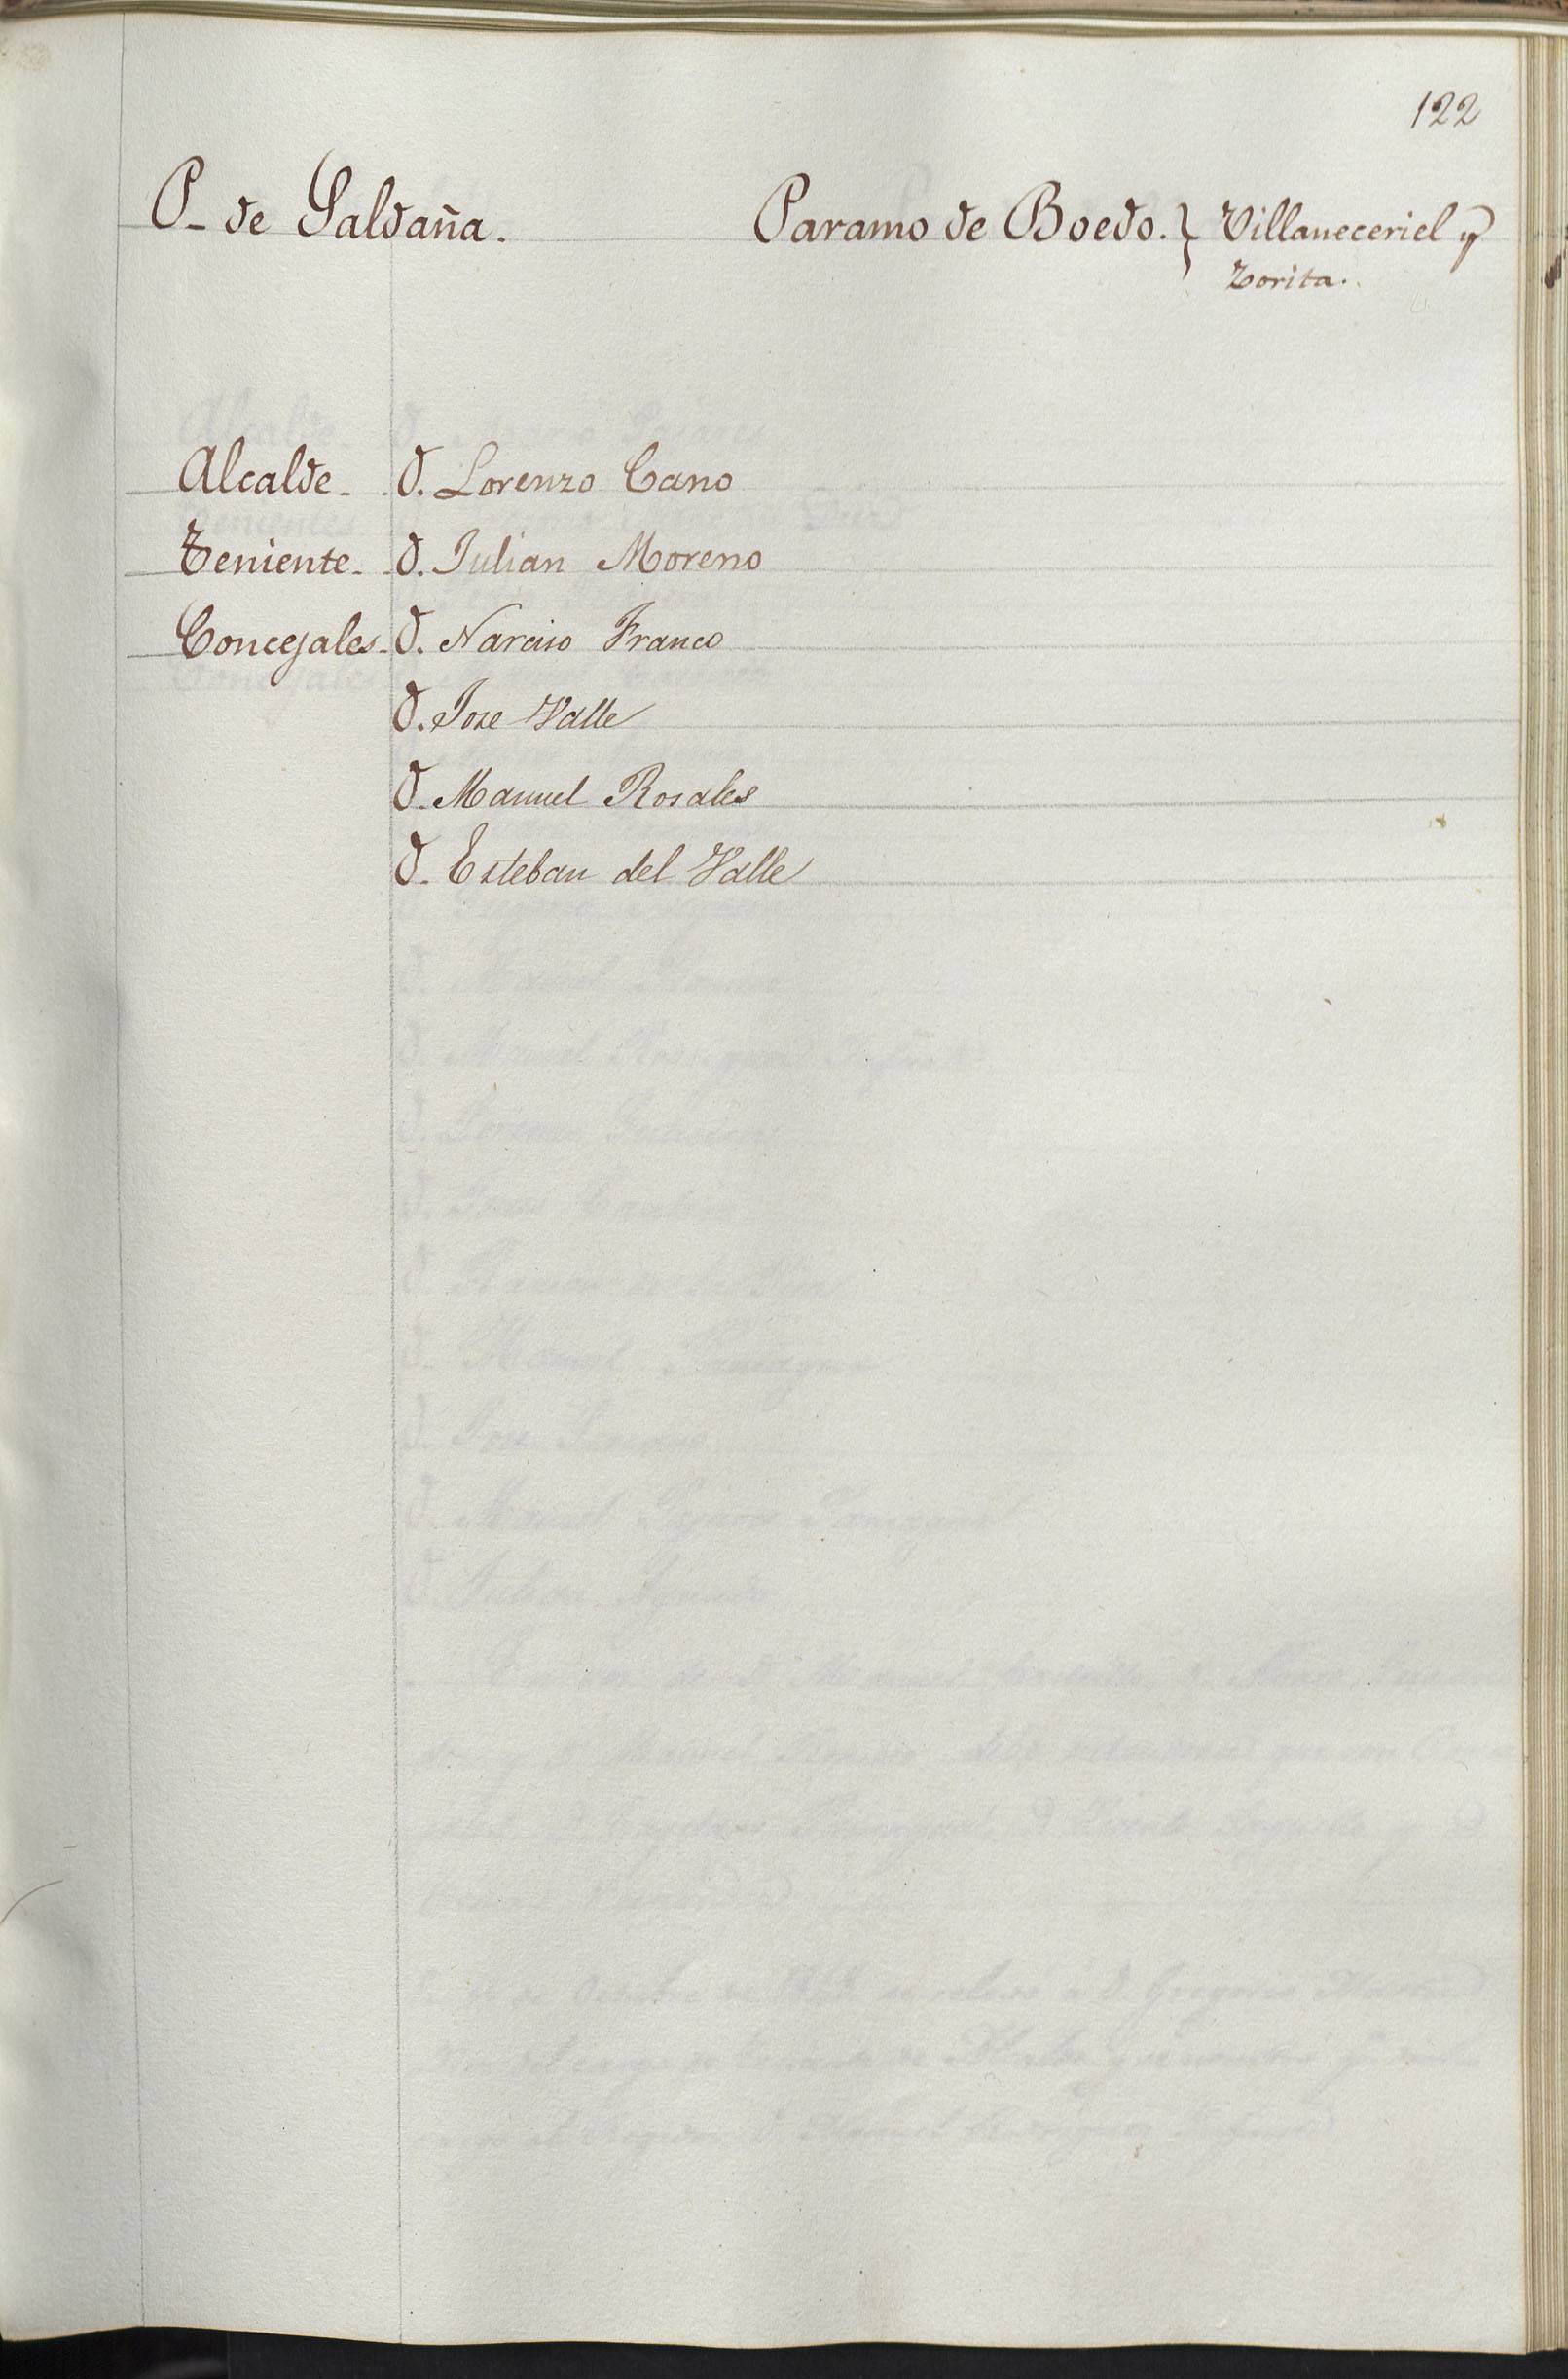 122
P- de Saldaña. Paramo de Boedo. } Villaneceriel y
Zorita.
Alcalde- D. Lorenzo Cano
Teniente- D. Julian Moreno
Concejales- D. Narciso Franco
D. Jose Valle
D. Manuel Rosales
D. Esteban del Valle